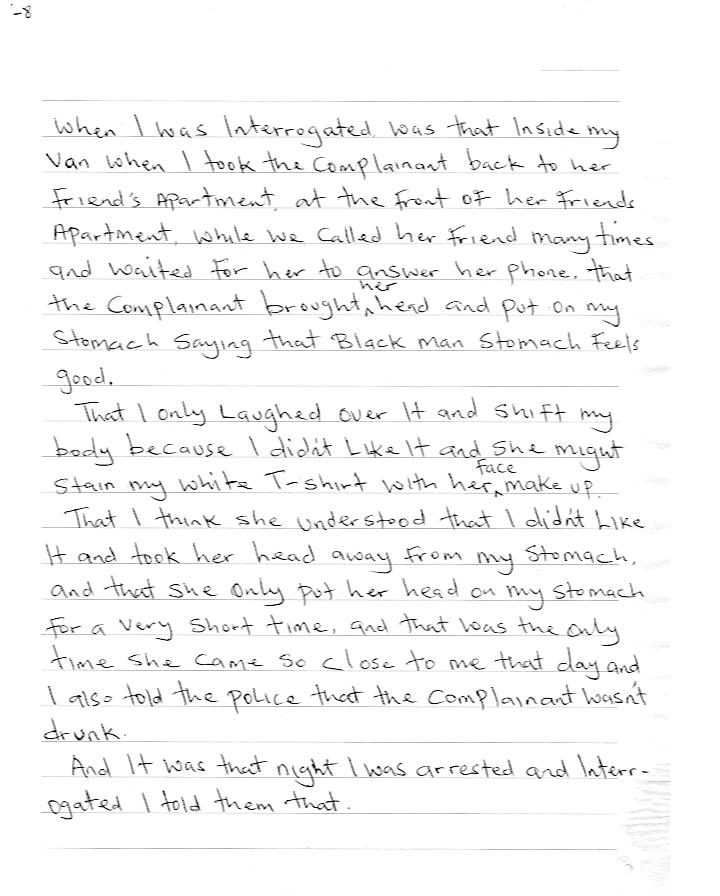 -8
When I was Interrogated. was that Inside my
Van when I took the Complainant back to her
Friend's Apartment, at the front of her friends
Apartment, while we Called her friend many times
and waited for her to answer her phone. that
the Complainant brought her head and put on my
Stomach Saying that Black man Stomach Feels
good.
That I only Laughed over It and shift my
body because I didn't Like It and she might
Stain my white T-shirt with her face make up.
That I think she understood that I didn't Like
It and took her head away from my Stomach,
and that she only put her head on my stomach
for a very short time, and that was the only
time she came so close to me that day and
I also told the police that the Complainant wasn't
drunk.
And It was that night I was arrested and Interr-
ogated I told them that.